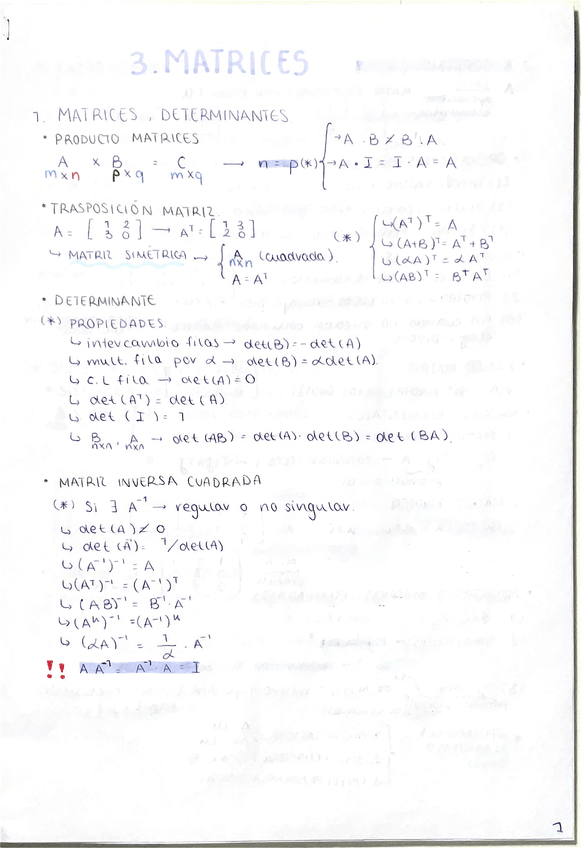 3. MATRICES
1. MATRICES, DETERMINANTES
• PRODUCTO MATRICES
A × B = C → n = p (*) → A · B ≠ B · A
m×n p×q m×q → A · I = I · A = A
• TRASPOSICIÓN MATRIZ
A = [1 2; 3 0] → Aᵀ = [1 3; 2 0] (*) ↳ (Aᵀ)ᵀ = A
↳ (A+B)ᵀ = Aᵀ + Bᵀ
↳ MATRIZ SIMÉTRICA → A n×n (cuadrada). ↳ (αA)ᵀ = αAᵀ
A = Aᵀ ↳ (AB)ᵀ = BᵀAᵀ
• DETERMINANTE
(*) PROPIEDADES
↳ intercambio filas → det(B) = -det(A)
↳ mult. fila por α → det(B) = αdet(A)
↳ C.L fila → det(A) = 0
↳ det(Aᵀ) = det(A)
↳ det(I) = 1
↳ B n×n, A n×n → det(AB) = det(A) · det(B) = det(BA).
• MATRIZ INVERSA CUADRADA
(*) Si ∃ A⁻¹ → regular o no singular.
↳ det(A) ≠ 0
↳ det(A⁻¹) = 1/det(A)
↳ (A⁻¹)⁻¹ = A
↳ (Aᵀ)⁻¹ = (A⁻¹)ᵀ
↳ (AB)⁻¹ = B⁻¹ · A⁻¹
↳ (Aᵏ)⁻¹ = (A⁻¹)ᵏ
↳ (αA)⁻¹ = 1/α · A⁻¹
!! A A⁻¹ = A⁻¹ · A = I
1